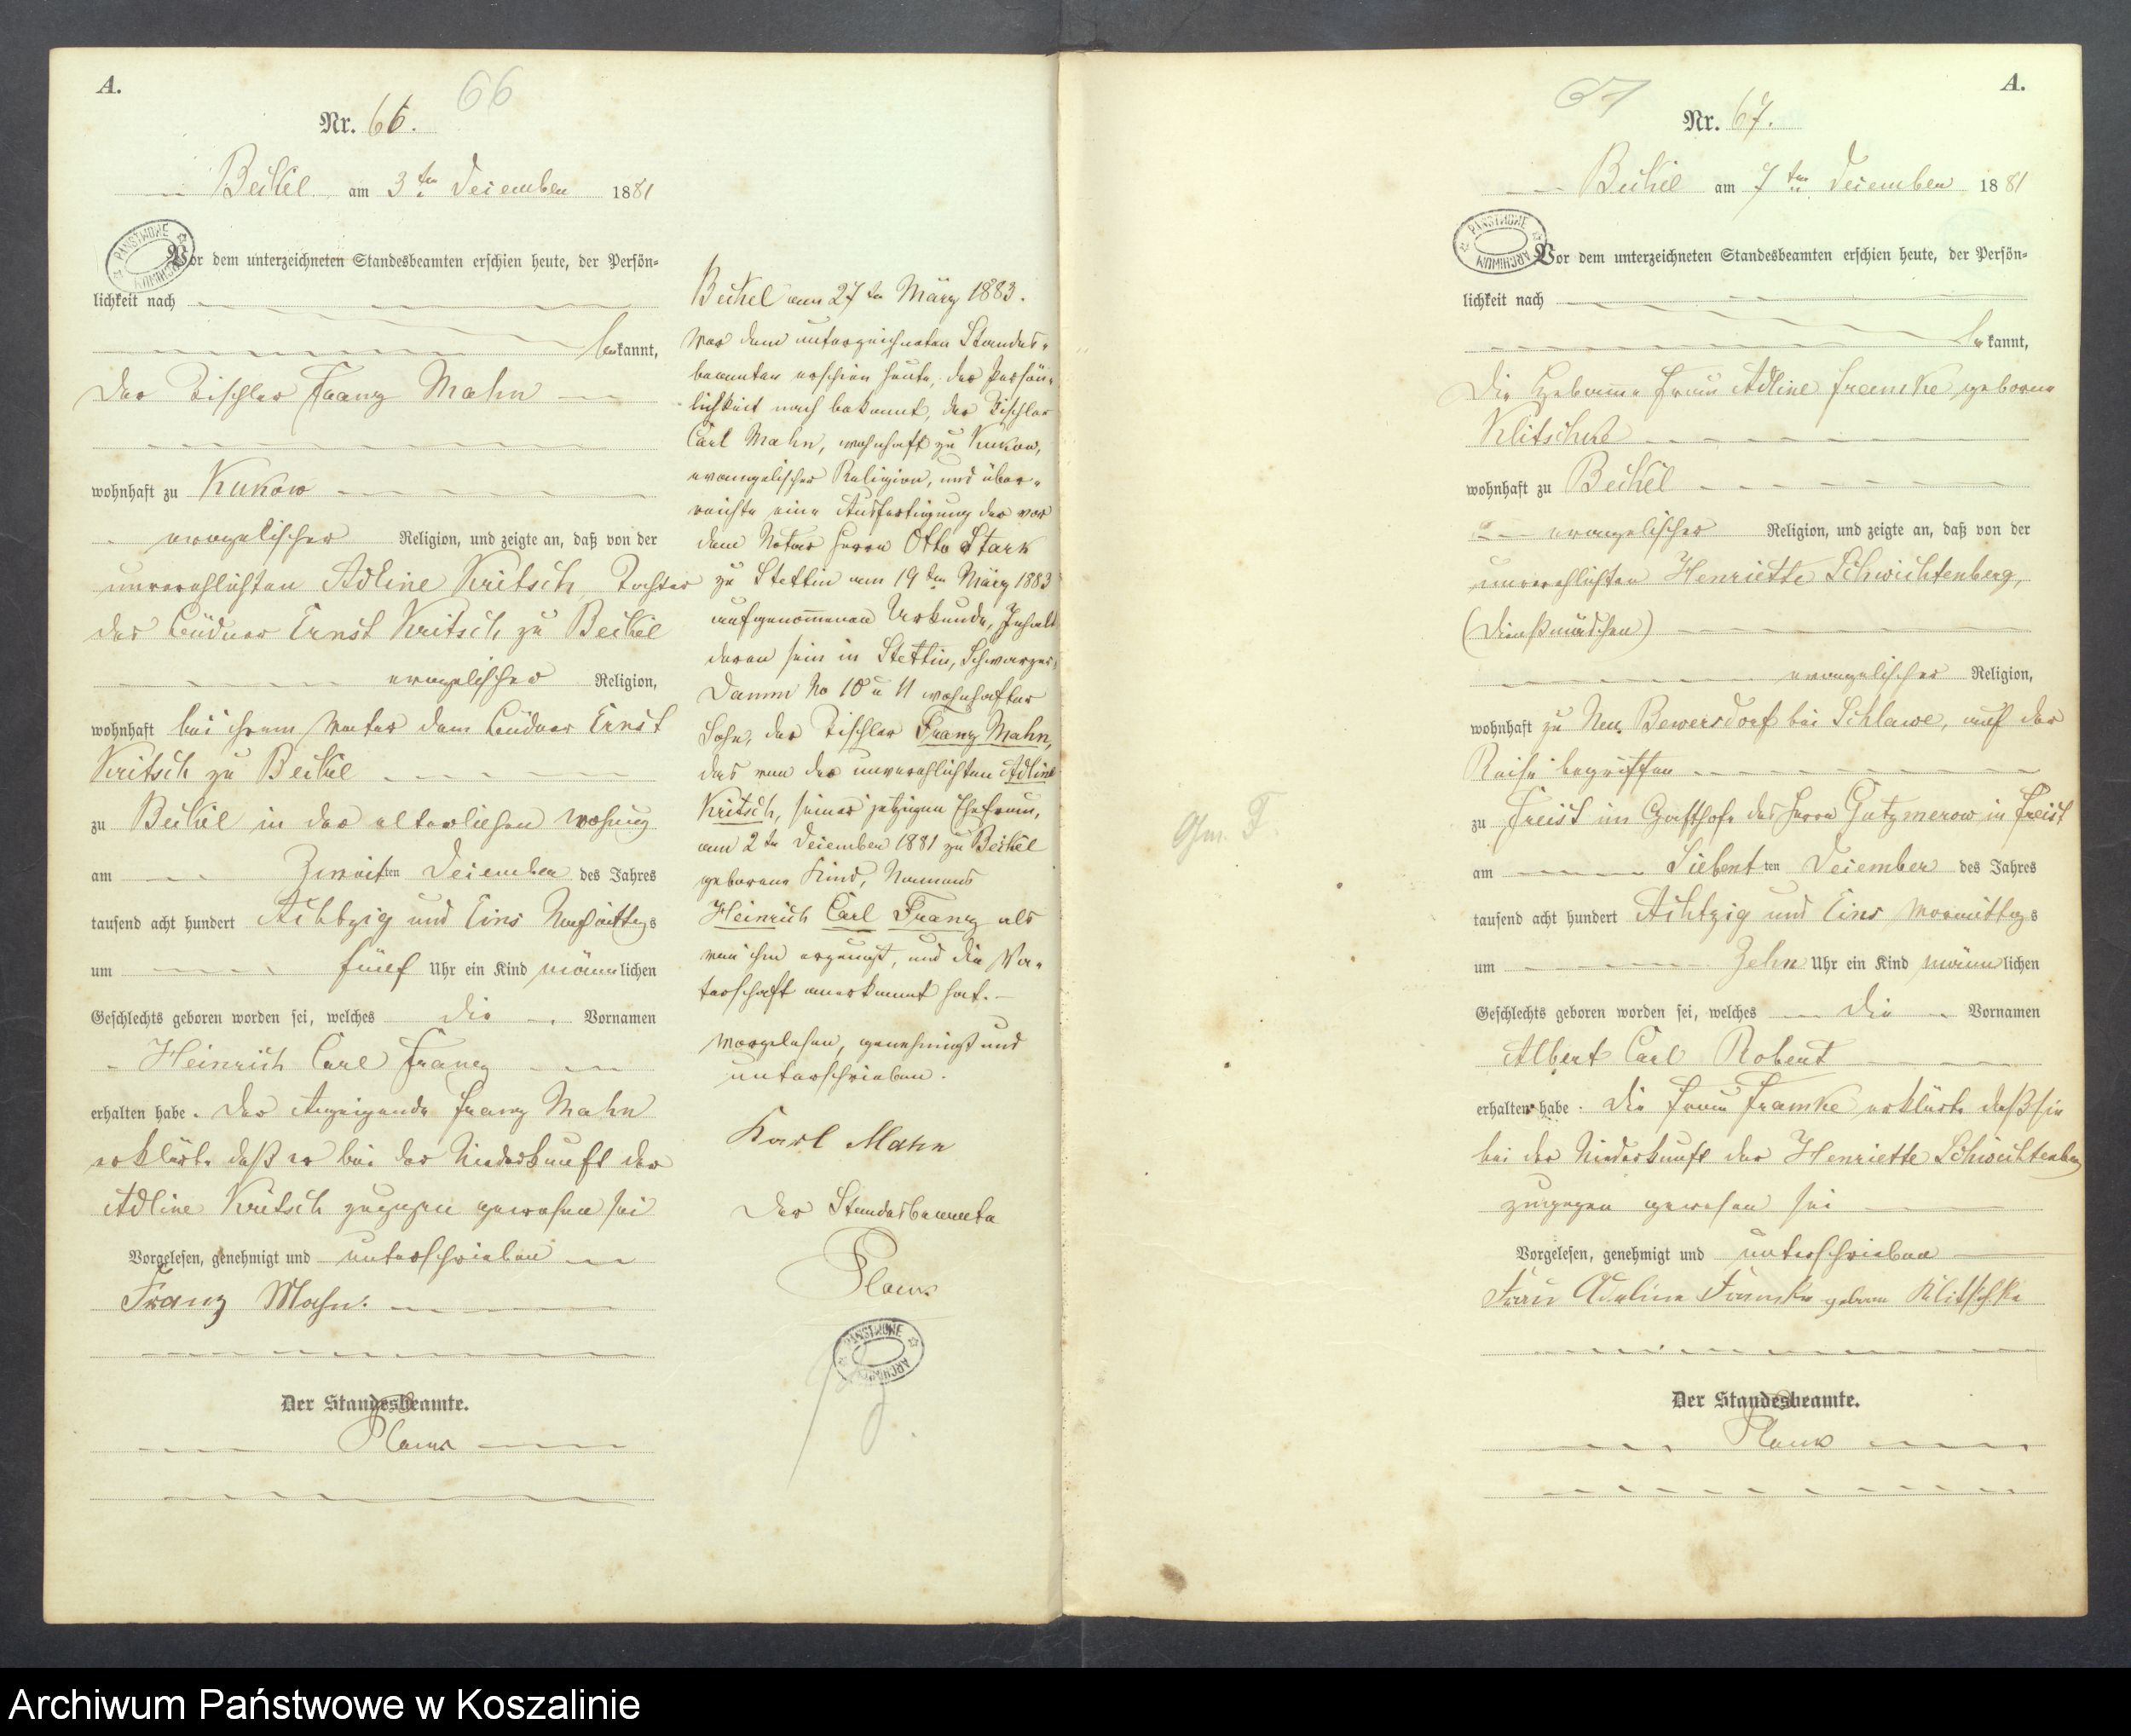 A.
66
Nr. 66.
Beckel am 3ten December 1881
PAŃSTWOWE ARCHIWUM
Vor dem unterzeichneten Standesbeamten erschien heute, der Persön-
lichkeit nach
bekannt,
der Tischler Franz Mahn
wohnhaft zu Kukow
evangelischer Religion, und zeigte an, daß von der
unverehlichten Adline Kritsch, Tochter
des Büdner Ernst Kritsch zu Beckel
evangelischer Religion,
wohnhaft bei ihrem Vater dem Büdner Ernst
Kritsch zu Beckel
zu Beckel in der elterlichen Wohnung
am Zweitten December des Jahres
tausend acht hundert Achtzig und Eins Nachmittags
um fünf Uhr ein Kind männlichen
Geschlechts geboren worden sei, welches die Vornamen
Heinrich Carl Franz
erhalten habe. Der Anzeigende Franz Mahn
erklärte daß er bei der Niederkunft der
Adline Kritsch zugegen gewesen sei
Vorgelesen, genehmigt und unterschrieben
Franz Mahn.
Der Standesbeamte.
Beckel am 27ten März 1883.
Vor dem unterzeichneten Standes-
beamten erschien heute, der Persön-
lichkeit nach bekannt, der Tischler
Carl Mahn, wohnhaft zu Kukow,
evangelischer Religion, und über-
reichte eine Ausfertigung der vor
dem Notar Herrn Otto Stark
zu Stettin am 19ten März 1883
aufgenommenen Urkunde, Inhalt
deren sein in Stettin, Schwarzer
Damm No 10 u 11 wohnhafter
Sohn, der Tischler Franz Mahn,
das von der unverehlichten Adline
Kritsch, seiner jetzigen Ehefrau,
am 2ten December 1881 zu Beckel
geborene Kind, Namens
Heinrich Carl Franz als
von ihm erzeugt, und die Va-
terschaft anerkannt hat.
Vorgelesen, genehmigt und
unterschrieben.
Karl Mahn
Der Standesbeamte
PAŃSTWOWE ARCHIWUM
A.
67
Nr. 67.
Beckel am 7ten December 1881
PAŃSTWOWE ARCHIWUM
Vor dem unterzeichneten Standesbeamten erschien heute, der Persön-
lichkeit nach
bekannt,
Die Hebamme Frau Adline Framke geborne
Klitschke
wohnhaft zu Beckel
evangelischer Religion, und zeigte an, daß von der
unverehlichten Henriette Schwichtenberg,
(Dienstmädchen)
evangelischer Religion,
wohnhaft zu Neu Bewersdorf bei Schlawe, auf der
Reise begriffen
zu Freist im Gasthofe des Herrn Gutzmerow in Freist
am Siebentten December des Jahres
tausend acht hundert Achtzig und Eins Vormittags
um Zehn Uhr ein Kind männlichen
Geschlechts geboren worden sei, welches die Vornamen
Albert Carl Robert
erhalten habe. Die Frau Framke erklärte daß sie
bei der Niederkunft der Henriette Schwichtenberg
zugegen gewesen sei
Vorgelesen, genehmigt und unterschrieben
Frau Adeline Framke geborne Klitschke
Der Standesbeamte.
Archiwum Państwowe w Koszalinie